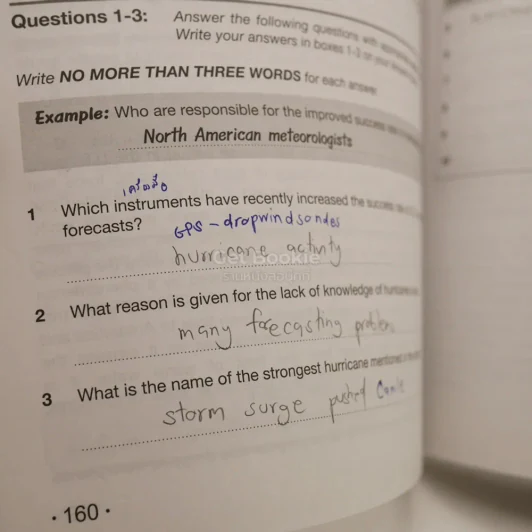 Questions 1-3: Answer the following questions with
Write your answers in boxes 1-3 on your
Write NO MORE THAN THREE WORDS for each answer
Example: Who are responsible for the improved success
North American meteorologists
เครื่องมือ
1 Which instruments have recently increased the success
forecasts?
GPS - dropwindsondes
hurricane activity
Get Bookie
2 What reason is given for the lack of knowledge of
many forecasting problems
3 What is the name of the strongest hurricane mentioned
storm surge pushed
• 160 •